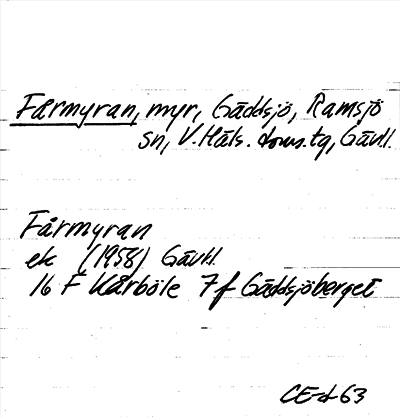 Fårmyran, myr, Gäddsjö, Ramsjö
sn, V. Häls. doms.tg, Gävl.
Fårmyran
ek (1958) Gävl.
16 F Kårböle 7 f Gäddsjöberget
CE-d 63